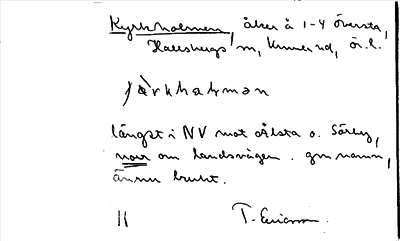 Kyrkholmen, åker å 1-4 Översta,
Hallsbergs sn, Kumla hd, Ör. l.
längst i NV mot Ålsta o. Sörby,
norr om landsvägen. gm namn,
ännu brukt.
T. Ericsson.